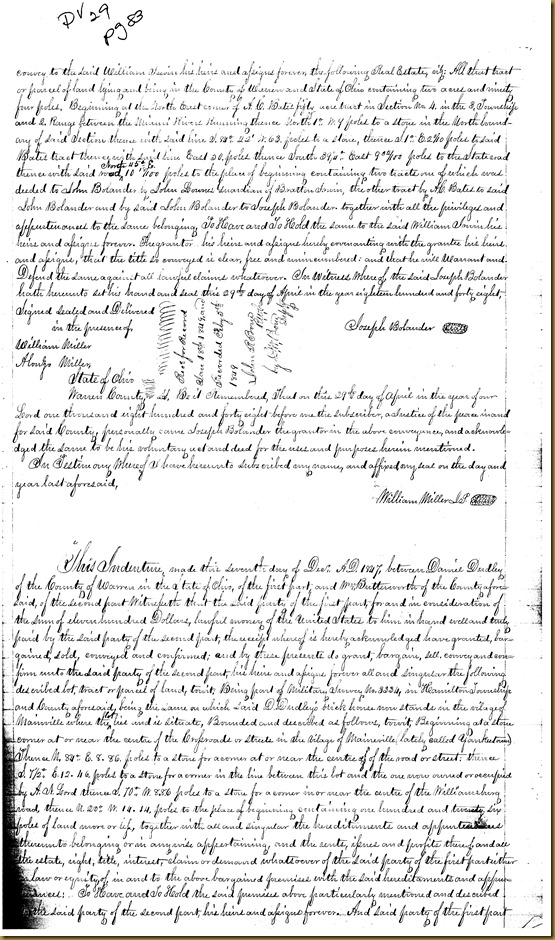 DV 29
pg 83
convey to the said William Irwin his heirs and assigns forever the following Real Estate, viz: All that tract
or parcel of land lying and being in the County of Warren and State of Ohio containing two acres and ninety
four poles. Beginning at the North East corner of A. C. Bates fifty acre tract in Section No. 4. in the 3, Township
and 2 Range between the Miami Rivers Running thence North 1° W. 9 poles to a stone in the North bound-
ary of said Section thence with said line S. 88° 22' W. 63. poles to a stone, thence S 1° E. 2 poles to said
Bates tract thence with said line East 50, poles thence South 39,5° East 9 poles to the State road
thence with said road, North 10 poles to the place of beginning containing two tracts one of which was
deeded to John Bolander by John Downs Guardian of Bratton Irwin, the other tract by A C Bates to said
John Bolander and by said John Bolander to Joseph Bolander. together with all the privileges and
appurtenances to the same belonging, To Have and To Hold the same to the said William Irwin his
heirs and assigns forever. The grantor his heirs and assigns hereby covenanting with the grantee his heirs.
and assigns, that the title so conveyed is clear, free and unincumbered: and that he will Warrant and
Defend the same against all lawful claims whatsoever. In Witness Whereof the said Joseph Bolander
hath hereunto set his hand and seal this 29th day of April in the year eighteen hundred and forty eight,
Signed Sealed and Delivered
in the presence of,
Joseph Bolander
William Miller
Alonzo Miller,
Rec. for Record
Jan 18th 1849 and
Recorded
1849
State of Ohio
Warren County, ss Be it Remembered, That on this 29th day of April in the year of our
Lord one thousand eight hundred and forty eight before me the subscriber, a Justice of the peace in and
for said County, personally came Joseph Bolander the grantor in the above conveyance, and acknowle-
dged the same to be his voluntary act and deed for the uses and purposes herein mentioned.
In Testimony Whereof I have hereunto subscribed my name, and affixed my seal on the day and
year last aforesaid,
William Miller J.P.
This Indenture, made this seventh day of Decr. A.D. 1847, between Daniel Dudley
of the County of Warren in the State of Ohio, of the first part, and Wm. Butterworth of the County afore
said, of the second part Witnesseth that the said party of the first part, for and in consideration of
the sum of eleven hundred Dollars, lawful money of the United States to him in hand well and truly
paid by the said party of the second part, the receipt whereof is hereby acknowledged have granted, bar-
gained, sold, conveyed and confirmed, and by these presents do grant, bargain, sell, convey and con-
firm unto the said party of the second part, his heirs and assigns forever all and singular the following
described lot, tract or parcel of land, to wit; Being part of Military Survey No. 3334, in Hamilton Township
and County aforesaid, being the same on which said D. Dudley's brick house now stands in the village of
Maineville where the lot lies and is situate, Bounded and described as follows, to wit; Beginning at a stone
corner at or near the centre of the Crossroads or streets in the Village of Maineville, lately called Yankeetown)
Thence N. 84° E. 8. 86. poles to a stone for a corner at or near the centre of of the road or street: thence
S. 7½° E. 12. 46 poles to a stone for a corner in the line between this lot and the one now owned or occupied
by A. S. Ford thence S. 70° W. 886 poles to a stone for a corner in or near the centre of the Williamsburg
road, thence N. 20° W. 14. 14. poles to the place of beginning containing one hundred and twenty six
poles of land more or less, together with all and singular the hereditaments and appurtenances
thereunto belonging or in anywise appertaining, and the rents, issues and profits thereof, and all
the estate, right, title, interest, claim or demand whatsoever of the said party of the first part either
in law or equity, of, in and to the above bargained premises with the said hereditaments and appur-
tenances: To Have and To Hold the said premises above particularly mentioned and described
to the said party of the second part, his heirs and assigns forever. And said party of the first part